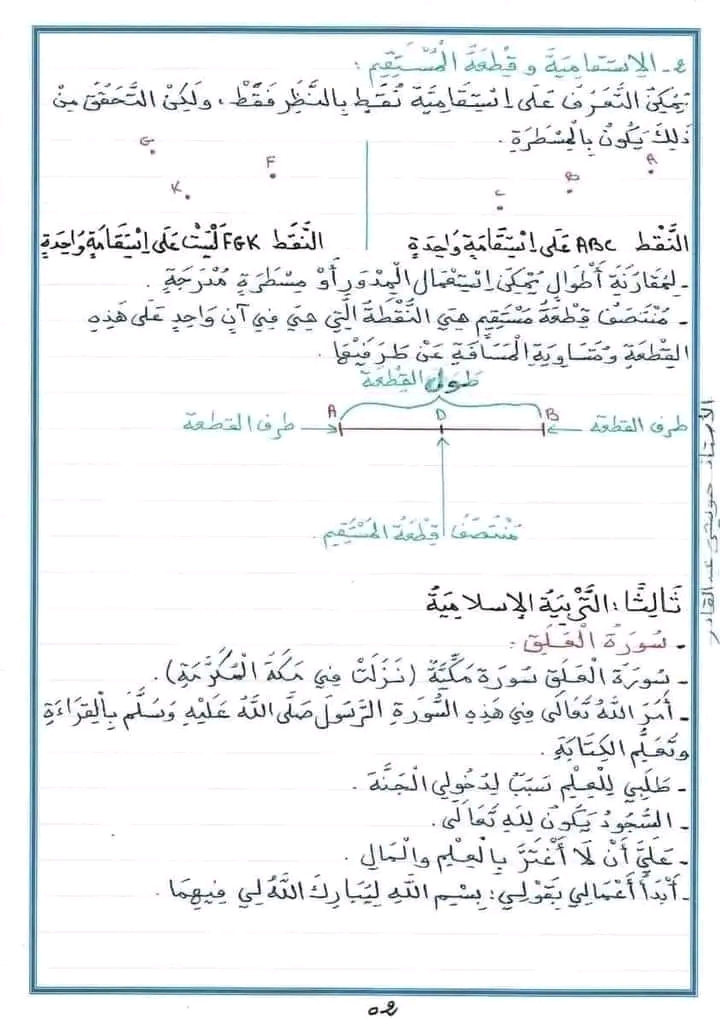 4 - الإستقامية و قطعة المستقيم :
يُمْكِنُ التَّعَرُّفُ عَلَى اِسْتِقَامِيَّةِ نُقَطٍ بِالنَّظَرِ فَقَطْ، وَلَكِنْ التَّحَقُّقَ مِنْ
ذَلِكَ يَكُونُ بِالْمِسْطَرَةِ .
A
B
C
F
G
K
النَّقْط ABC عَلَى اِسْتِقَامَةٍ وَاحِدَةٍ
النَّقْط FGK لَيْسَتْ عَلَى اِسْتِقَامَةٍ وَاحِدَةٍ
- لِمُقَارَنَةِ أَطْوَالٍ يُمْكِنُ اِسْتِعْمَالُ الْمِدْوَرِ أَوْ مِسْطَرَةٍ مُدَرَّجَةٍ .
- مُنْتَصَفُ قِطْعَةُ مُسْتَقِيمٍ هِيَ النُّقْطَةُ الَّتِي هِيَ فِي آنٍ وَاحِدٍ عَلَى هَذِهِ
القِطْعَةِ وَمُتَسَاوِيَةِ الْمَسَافَةِ عَنْ طَرَفَيْهَا .
طول القطعة
طرف القطعة
A
D
B
طرف القطعة
مُنْتَصَفُ قِطْعَةُ المُسْتَقِيمِ .
ثَالِثًا : التَّرْبِيَةُ الإسلامِيَةُ
- سُورَةُ الْعَلَقِ :
- سُورَةُ الْعَلَقِ سُورَةٌ مَكِّيَّةٌ (نَزَلَتْ فِي مَكَّةَ الْمُكَرَّمَةِ).
- أَمَرَ اللَّهُ تَعَالَى فِي هَذِهِ السُّورَةِ الرَّسُولَ صَلَّى اللَّهُ عَلَيْهِ وَسَلَّمَ بِالْقِرَاءَةِ
وَتَعَلُّمِ الْكِتَابَةِ .
- طَلَبِي لِلْعِلْمِ سَبَبٌ لِدُخُولِي الْجَنَّةَ .
- السُّجُودُ يَكُونُ لِلَّهِ تَعَالَى.
- عَلَيَّ أَنْ لَا أَغْتَرَّ بِالْعِلْمِ وَالْمَالِ .
- أَبْدَأُ أَعْمَالِي بِقَوْلِي: بِسْمِ اللَّهِ لِيُبَارِكَ اللَّهُ لِي فِيهِمَا .
الأستاذ حويشي عبد القادر
02